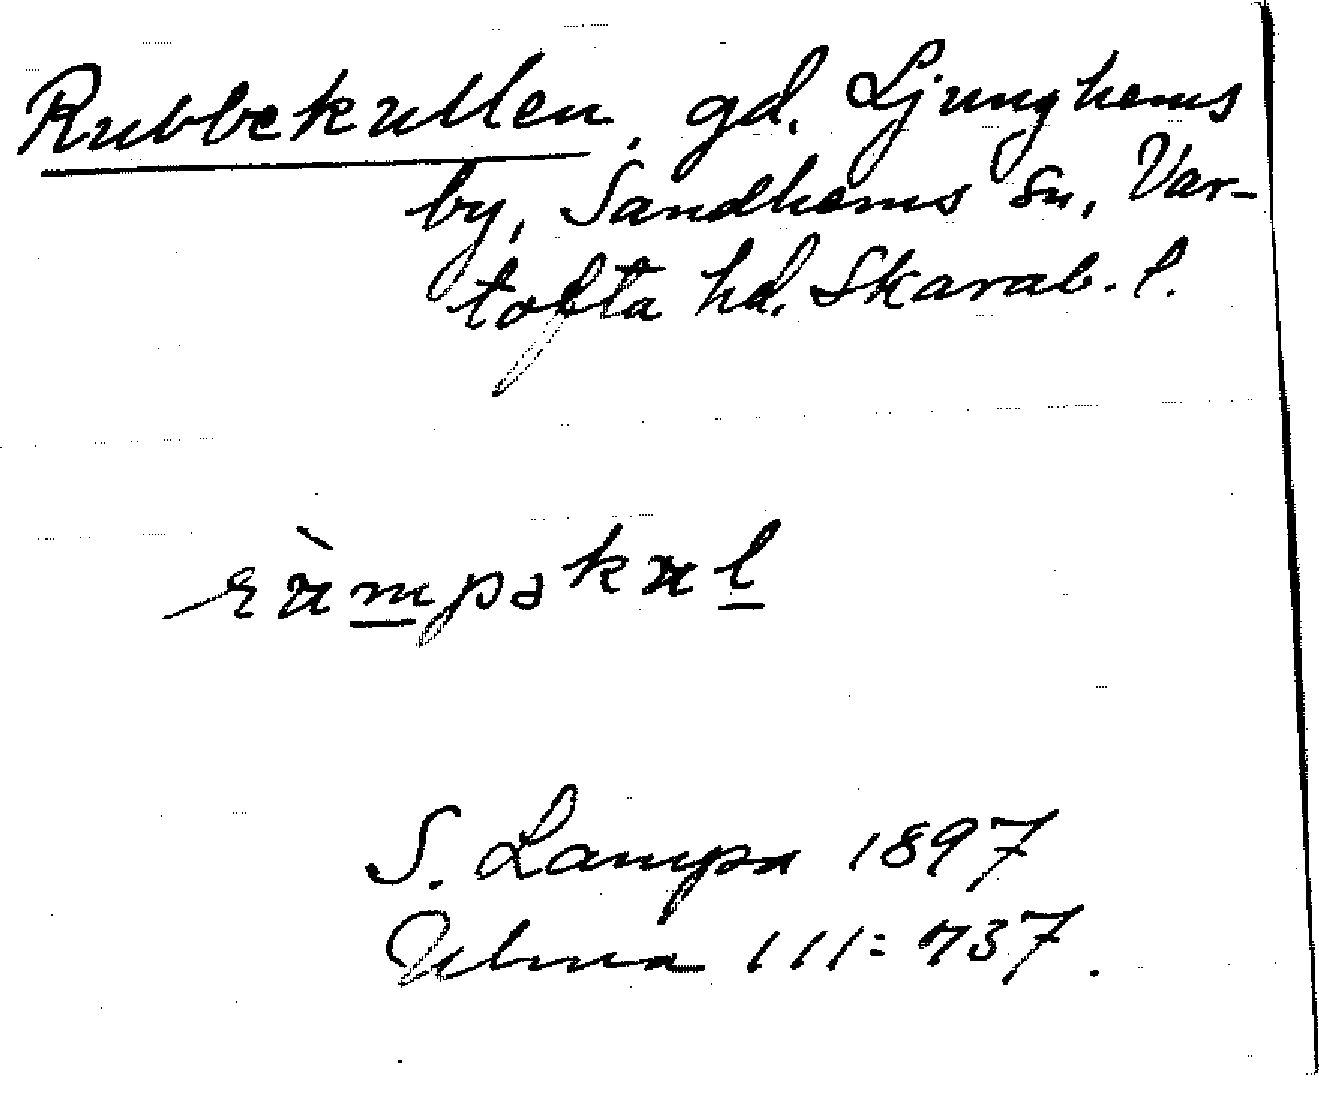 Rubbekullen, gd. Ljunghems
by, Sandhems sn, Var-
tofta hd. Skarab. l.
S. Lampa 1897
Ulma 111:737.